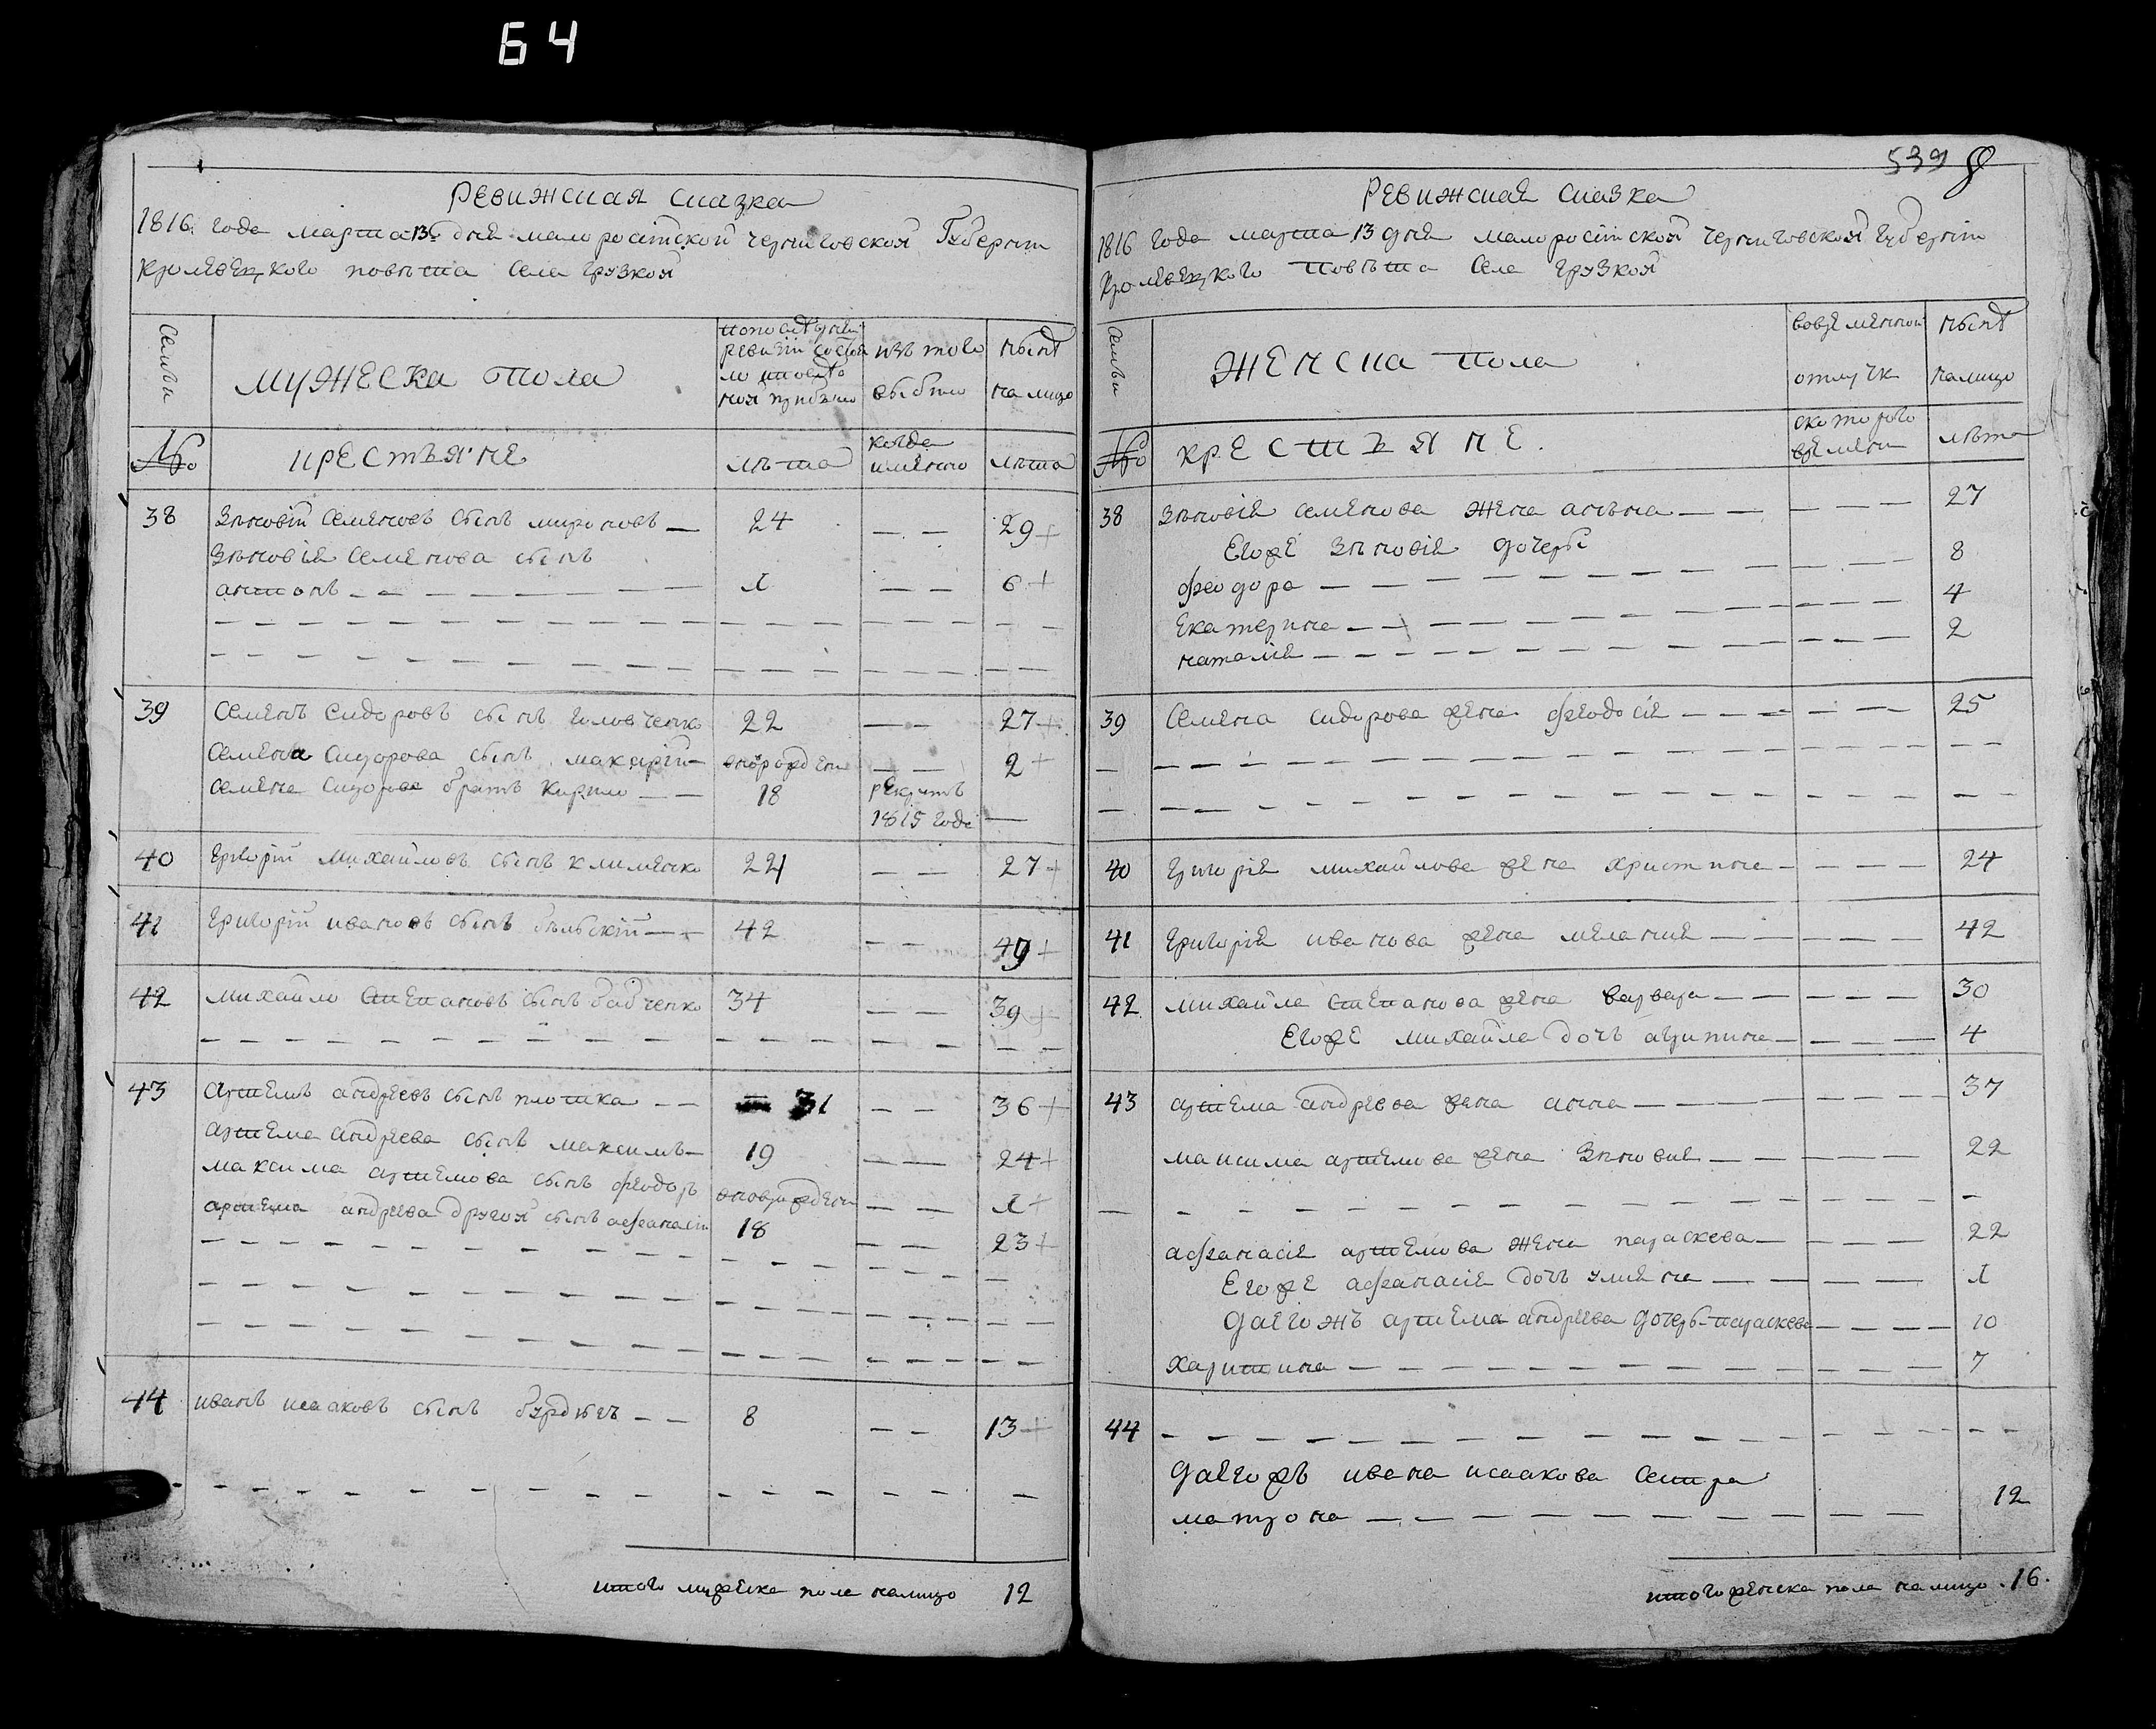 64
РЕВИЖСКАЯ СКАЗКА
1816 года марта 13 дня малоросійской черниговской Губерніи
кролевецкого повѣта Села грузкой
Семьи
МУЖЕСКА пола
по последней ревизіи состояло и после оной прибыло
изъ того выбыло
ныне на лицо
№
КРЕСТЬЯНЕ
лѣта
когда именно
лѣта
38 Зѣновій Семеновъ сынъ мироновъ — 24 — — 29 +
Зѣновія Семенова сынъ
антонъ — — — — — — 1 — — 6 +
39 Семенъ Сидоровъ сынъ головченко 22 — — 27 +
Семена Сидорова сынъ макарій — новорожденъ — — 2 +
Семена Сидорова братъ кирило — — 18 рекрутъ
1815 года —
40 григорій михайловъ сынъ клименко 22 — — 27 +
41 григорій ивановъ сынъ бѣльскій — 42 — — 47 +
42 михайло степановъ сынъ бабченко 34 — — 39 +
43 артемъ андреевъ сынъ плотка — — 31 — — 36 +
артема андреева сынъ максимъ — 19 — — 24 +
максима артемова сынъ феодоръ новорожденъ — — 1 +
артема андреева другой сынъ афанасій 18 — — 23 +
44 иванъ исааковъ сынъ — — 8 — — 13 +
итого мужеска пола налицо 12
539
РЕВИЖСКАЯ СКАЗКА
1816 года марта 13 дня малоросійской черниговской губерніи
кролевецкого повѣта Села грузкой
Семьи
ЖЕНСКА пола
во временной отлучке
ныне налицо
№
КРЕСТЬЯНЕ.
с которого времени
лѣта
38 Зѣновія Семенова жена анъна — — — — — 27
Егоже Зѣновія дочери
феодора — — — — — — 8
Екатерина — — — — — — 4
наталія — — — — — — 2
39 Семена сидорова жена феодосія — — — — — 25
40 григорія михайлова жена христина — — — — 24
41 григорія иванова жена меланія — — — — 42
42 михайла степанова жена варвара — — — — 30
Егоже михайла дочь агрипина — — — — 4
43 артема андреева жена анна — — — — 37
максима артемова жена Зѣновия — — — — 22
афанасія артемова жена параскева — — — — 22
Егоже афанасія дочь улияна — — — — 1
даегожъ артема андреева дочерь параскева — — — — 10
харитина — — — — — — 7
44 — — — — — —
даегожъ ивана исаакова сестра
матрона — — — — — — 12
итого женска пола налицо 16